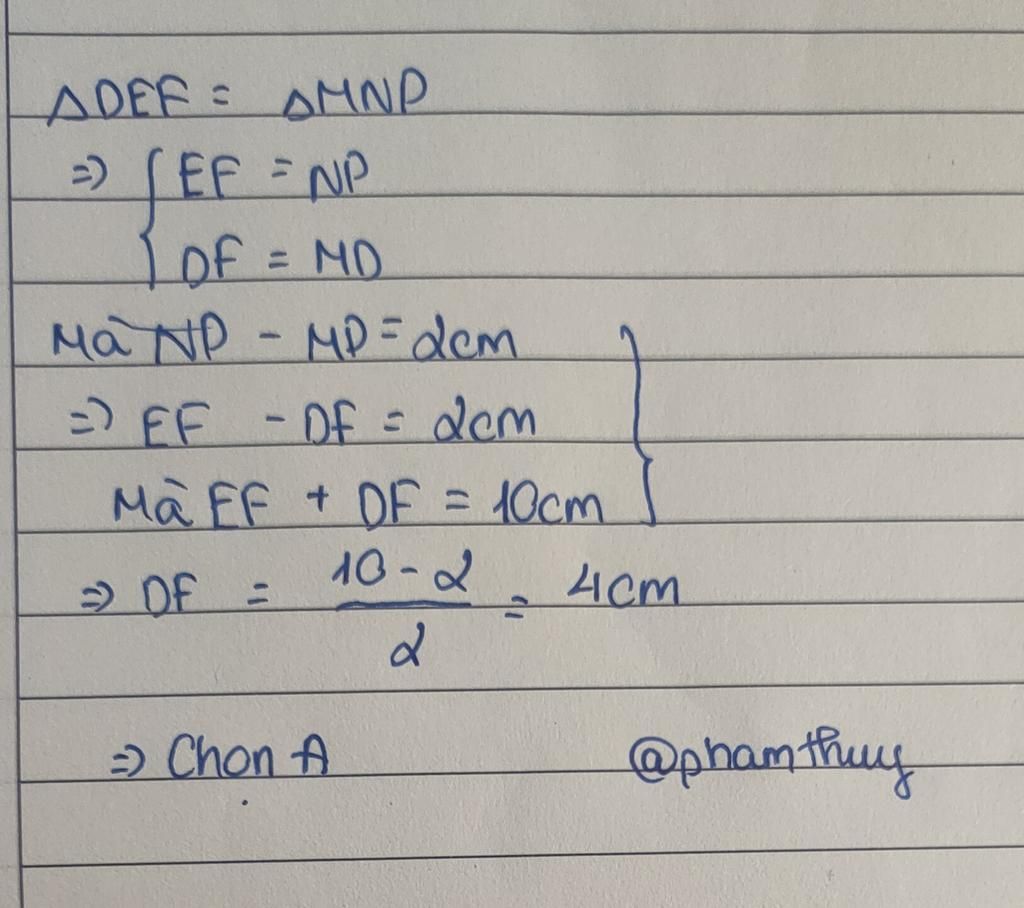 ΔDEF = ΔMNP
=> { EF = NP
DF = MP
Mà NP - MP = 2cm
=> EF - DF = 2cm
Mà EF + DF = 10cm }
=> DF = \frac{10-2}{2} = 4cm
=> Chọn A @phamthuy